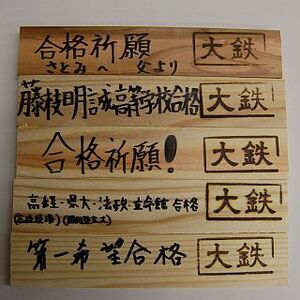 合格祈願 大鉄
さとみへ 父より
藤枝明誠高等学校合格 大鉄
合格祈願! 大鉄
高経・県大・法政・立命館 合格 大鉄
第一希望合格 大鉄